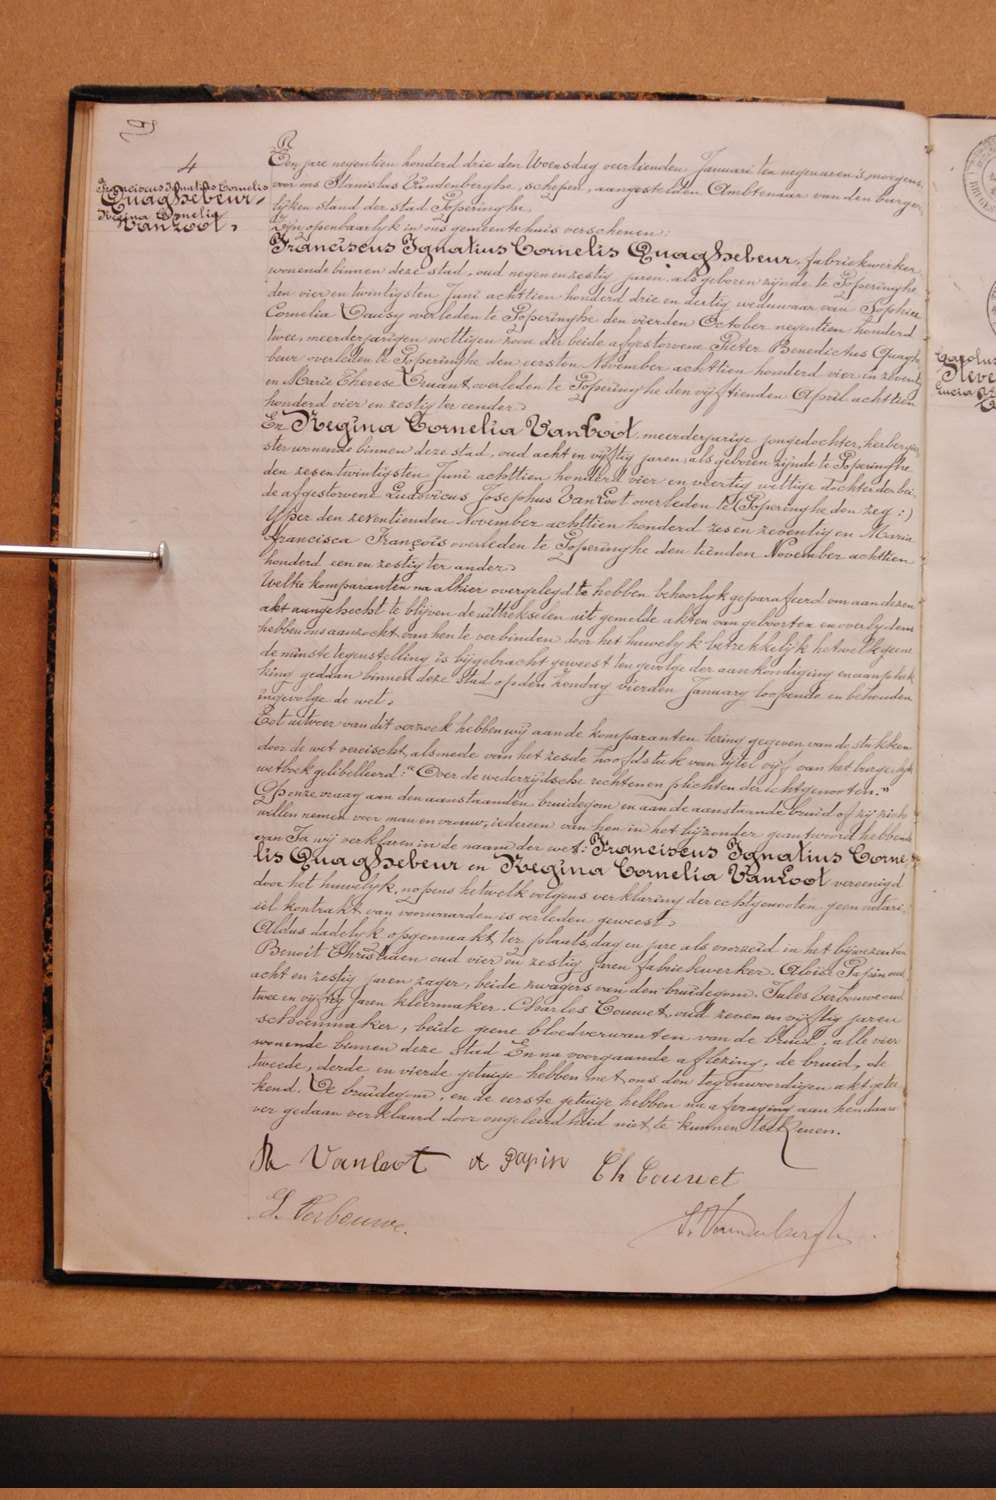 4
Franciscus Ignatius Cornelis
Quaghebeur
Regina Cornelia
VanLoot.
Een jare negentien honderd drie den Woensdag veertienden Januari ten negen uren 's morgens,
voor ons Stanislas Vandenberghe, schepen, aangestelden Ambtenaar van den burger-
lijken stand der stad Poperinghe,
Zijn openbaarlyk in ons gemeentehuis verschenen:
Franciscus Ignatius Cornelis Quaghebeur, fabriekwerker
wonende binnen deze stad, oud negen en zestig jaren als geboren zijnde te Poperinghe
den vier en twintigsten Juni achttien honderd drie en dertig weduwaar van Sophia
Cornelia overleden te Poperinghe den vierden October negentien honderd
twee, meerderjarigen wettigen zoon der beide afgestorvene Pieter Benedictus Quaghe
beur overleden te Poperinghe den eersten November achttien honderd vier en zeventig
en Marie Therese Druant overleden te Poperinghe den vijftienden April achttien
honderd vier en zestig ter eender.
En Regina Cornelia VanLoot, meerderjarige jongedochter, herbergier
ster wonende binnen deze stad, oud acht en vijftig jaren als geboren zijnde te Poperinghe
den zes en twintigsten Juni achttien honderd vier en veertig wettige dochter der bei
de afgestorvene Ludovicus Josephus VanLoot overleden te (Poperinghe den zeg :)
Yper den zeventienden November achttien honderd zes en zeventig en Maria
Francisca François overleden te Poperinghe den tienden November achttien
honderd een en zestig ter ander.
Welke komparanten na alhier overgelegd te hebben behoorlyk geparafeerd om aan dezen
akt aangehecht te blijven de uittrekselen uit gemelde akten van geboorten en overlydens
hebben ons aanzocht van hen te verbinden door het huwelyk betrekkelijk hetwelk geene
de minste tegenstelling is bijgebracht geweest ten gevolge der aankondiging en aanplak
king gedaan binnen deze stad op den Zondag vierden January loopende en behouden
ingevolge de wet.
Tot antwoor van dit verzoek hebben wij aan de komparanten lezing gegeven van de stukken
door de wet vereischt, alsmede van het zesde hoofdstuk van tytel vijf van het burgerlijk
wetboek gelibelleerd: "Over de wederzijdsche rechten en plichten der echtgenooten."
Op onze vraag aan den aanstaanden bruidegom en aan de aanstaande bruid of zij zich
willen nemen voor man en vrouw, iedereen van hen in het bijzonder geantwoord hebbende
van Ja wij verklaren in de naam der wet: Franciscus Ignatius Corne
lis Quaghebeur en Regina Cornelia VanLoot vereenigd
door het huwelyk, nopens hetwelk volgens verklaring der echtgenooten geen notari-
eel kontrakt van voorwaarden is verleden geweest.
Aldus dadelyk opgemaakt ter plaats, dag en jare als voorzeid in het bijwezen van
Benoit Christiaen oud vier en zestig jaren fabriekwerker. Aloise Papin oud
acht en zestig jaren zager, beide zwagers van den bruidegom. Jules Verbouwe oud
twee en vijftig jaren kleermaker. Charles Couwet oud zeven en vijftig jaren
schoenmaker, beide geene bloedverwanten van de bruid, alle vier
wonende binnen deze stad En na voorgaande aflezing, de bruid, de
tweede, derde en vierde getuige hebben met ons den tegenwoordigen akt getee
kend. De bruidegom, en de eerste getuige hebben na afvraging aan hendaar
ver gedaan verklaard door ongeleerdheid niet te kunnen teekenen.
VanLoot a Papin Ch Couwet
J. Verbouwe. S. Vandenberghe
Carolus